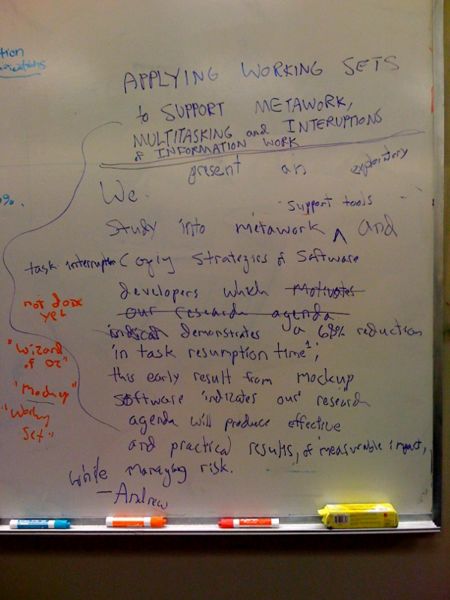 APPLYING WORKING SETS
to SUPPORT METAWORK,
MULTITASKING and INTERUPTIONS
of INFORMATION WORK
We present an exploratory
Study into metawork support tools and
task interruption coping Strategies of Software
developers which motivates
our research agenda
demonstrates a 68% reduction
in task resumption time¹;
this early result from mockup
Software indicates our research
agenda will produce effective
and practical results, of measurable impact,
while managing risk.
— Andrew
not done
yet
"Wizard
of Oz"
"Mockup"
"Working
Set"